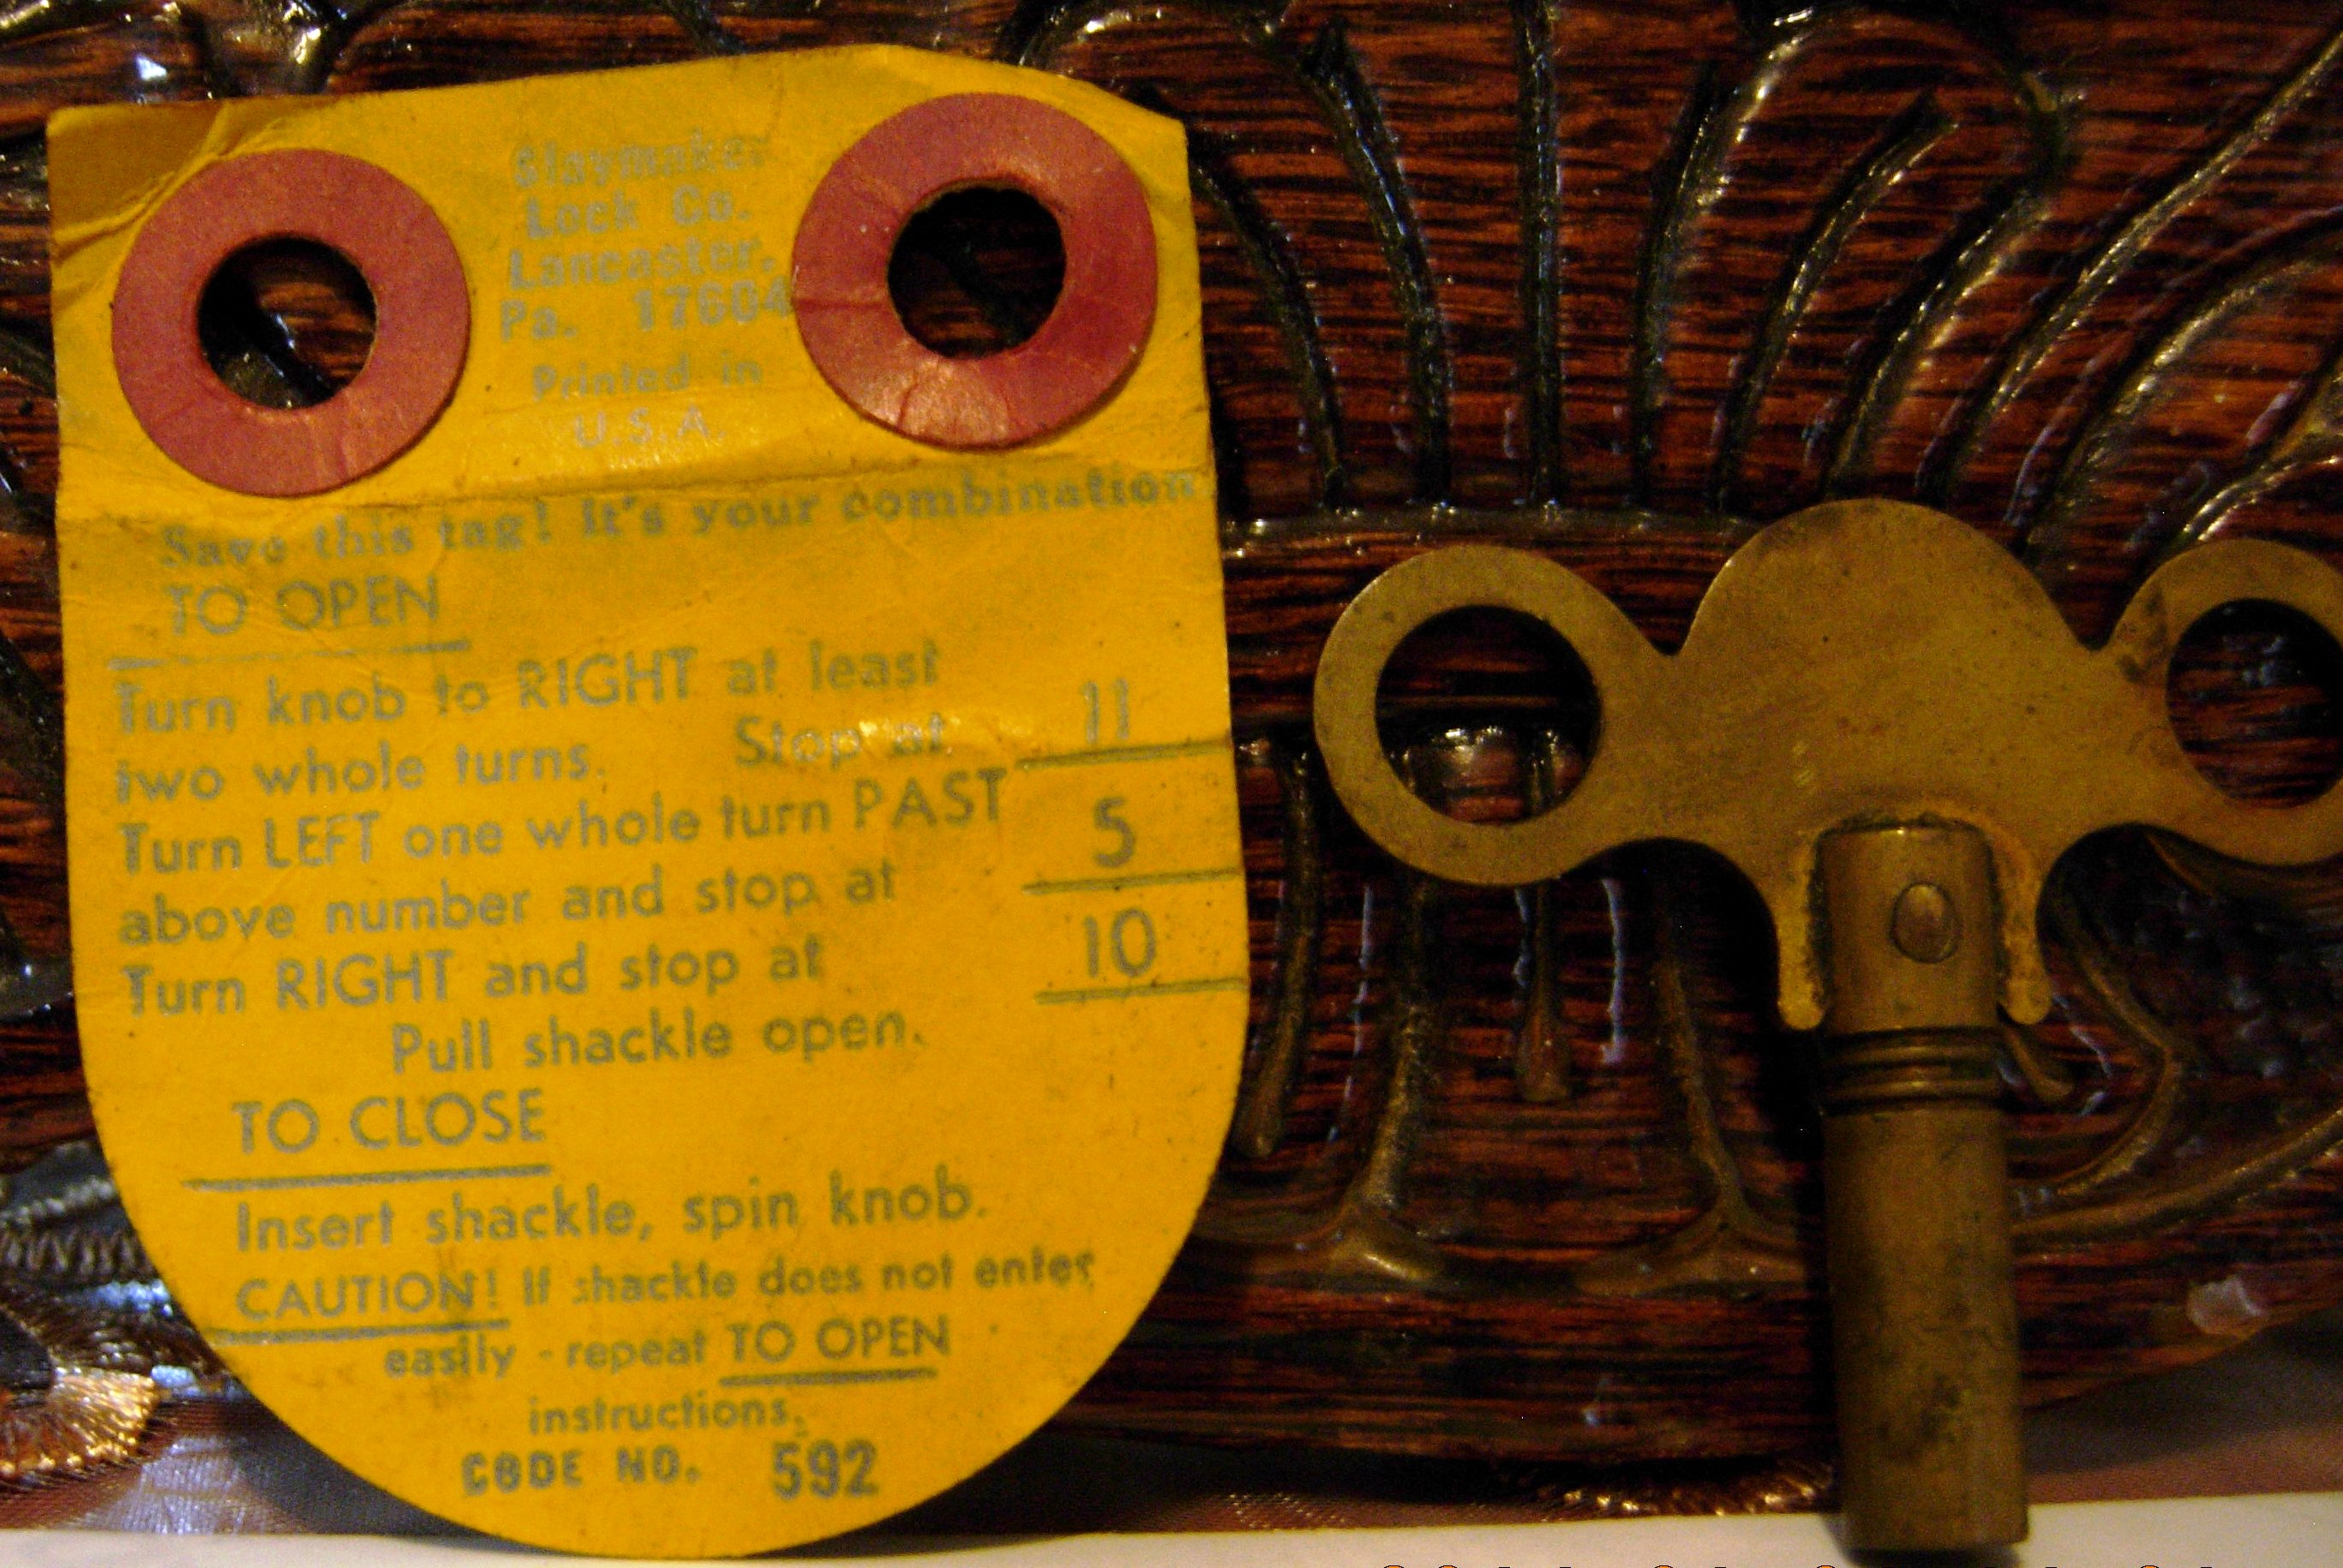 Slaymaker
Lock Co.
Lancaster,
Pa. 17604
Printed in
U.S.A.
Save this tag! It's your combination
TO OPEN
Turn knob to RIGHT at least
two whole turns. Stop at 11
Turn LEFT one whole turn PAST
above number and stop at 5
Turn RIGHT and stop at 10
Pull shackle open.
TO CLOSE
Insert shackle, spin knob.
CAUTION! If shackle does not enter
easily - repeat TO OPEN
instructions.
CODE NO. 592